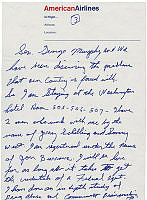 AmericanAirlines
In Flight...
Altitude;
Location;
3
Sen. George Murphy and We
have been discussing the problems
that our Country is faced with
So I am Staying at the Washington
hotel Room 505-506-507- I have
2 men who work with me by the
name of Jerry Schilling and Sonny
West. I am registered under the name
of Jon Burrows. I will be here
for as long as it takes to get
the credentials of a Federal Agent.
I have done an in depth study of
Drug Abuse and Communist Brainwashing